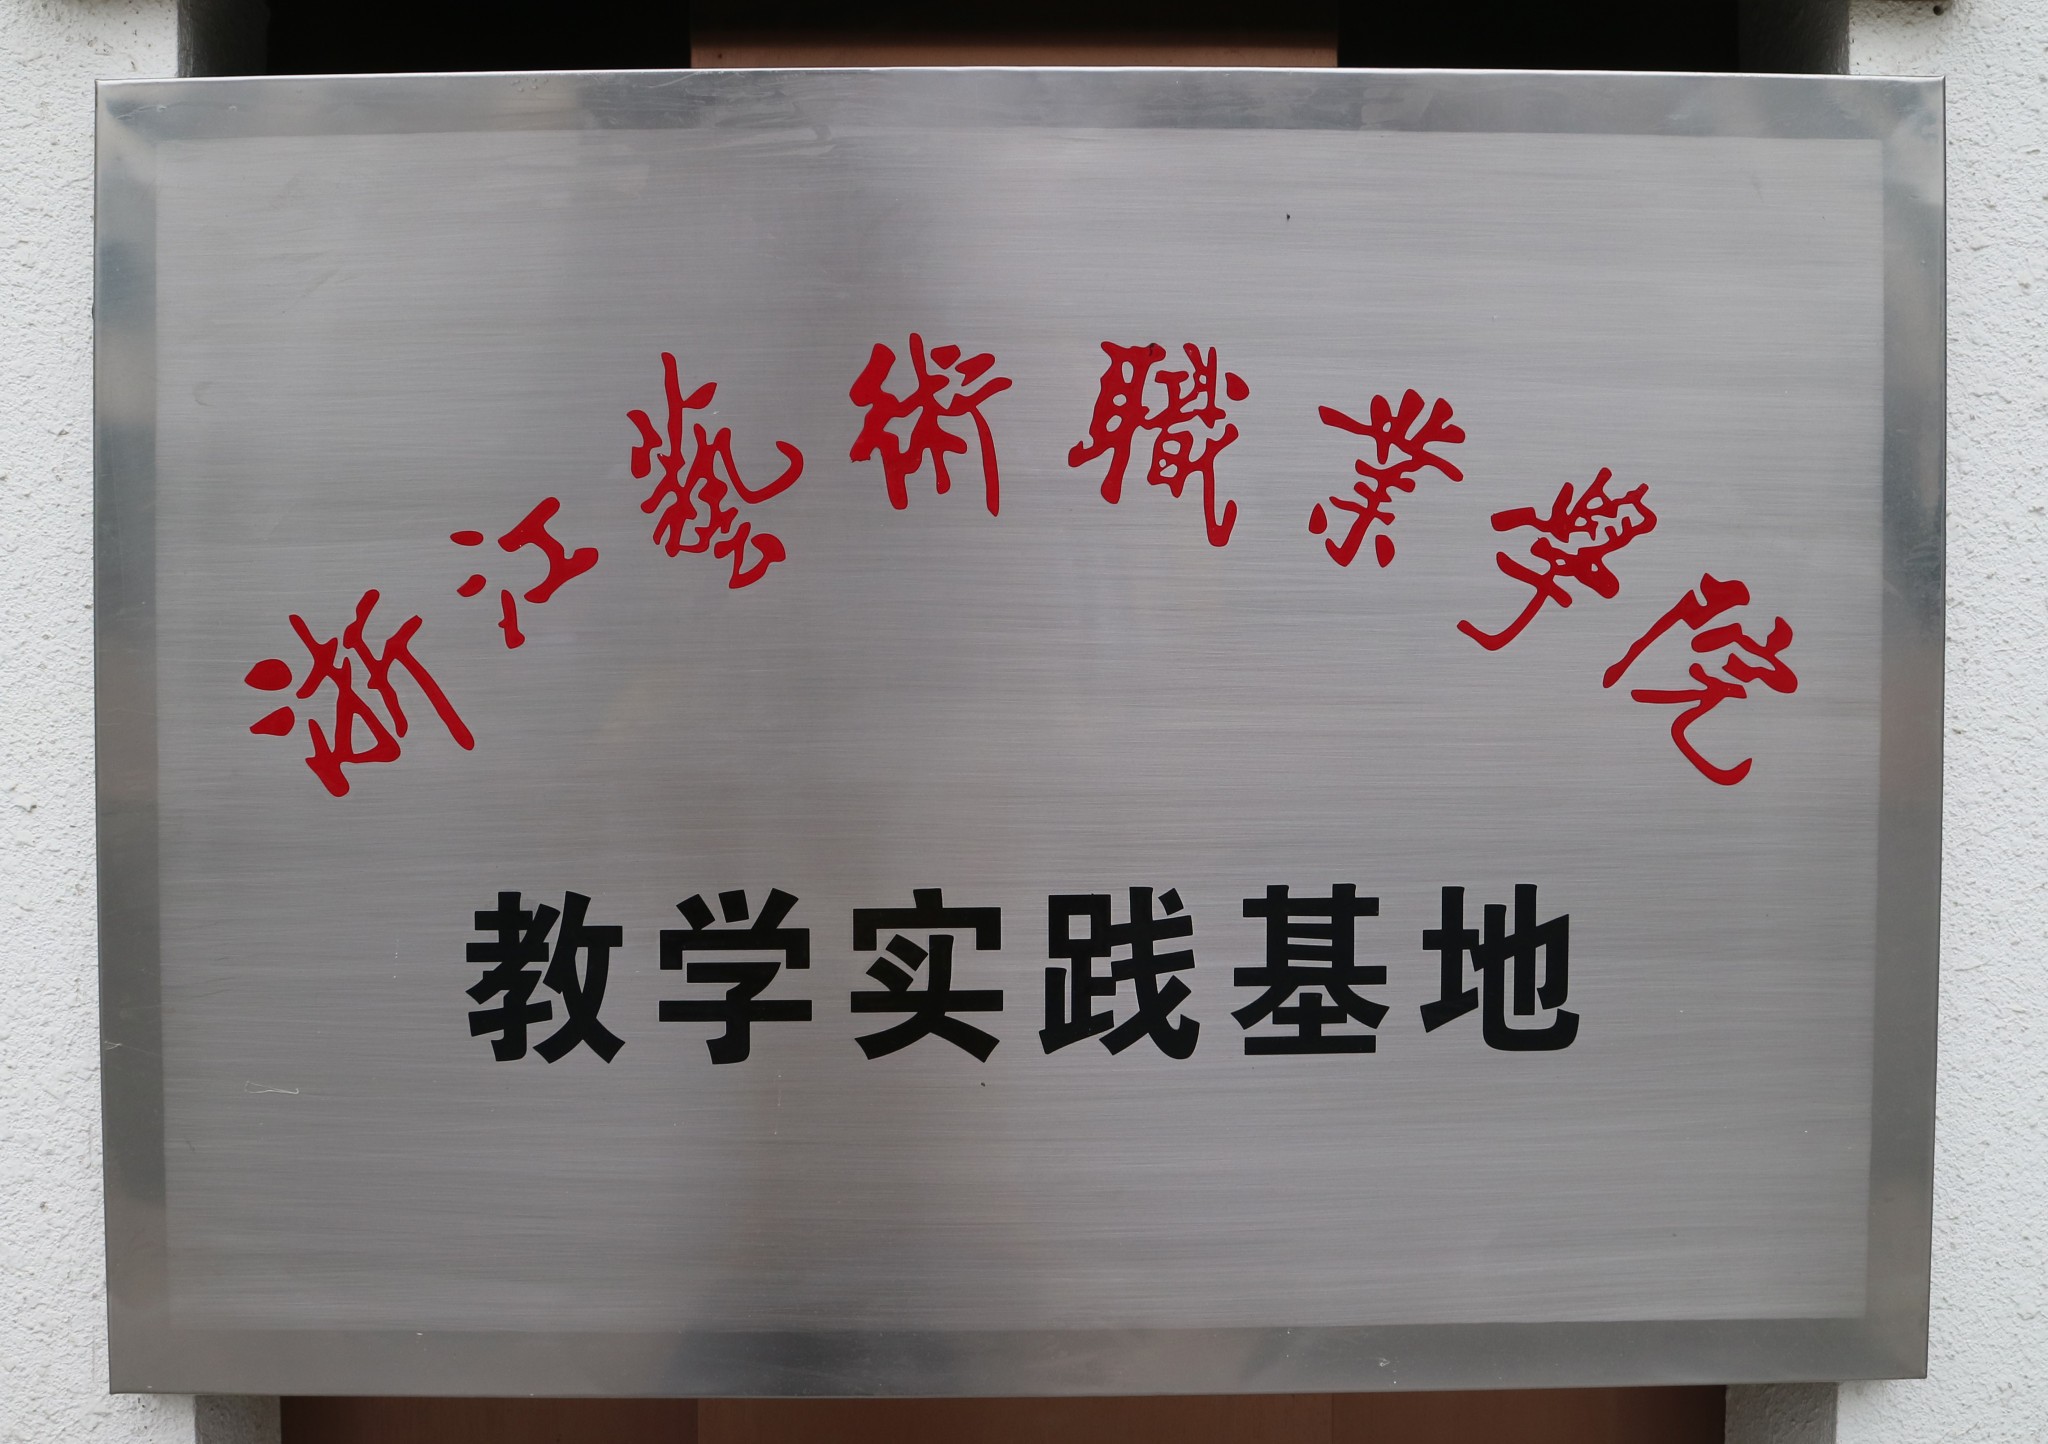 浙江藝術職業學院
教学实践基地